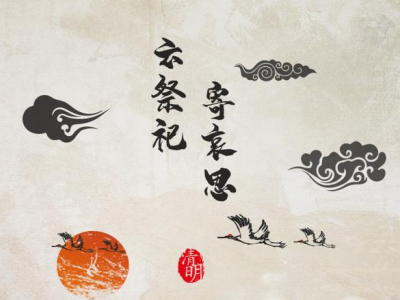 云祭祀
寄哀思
清明